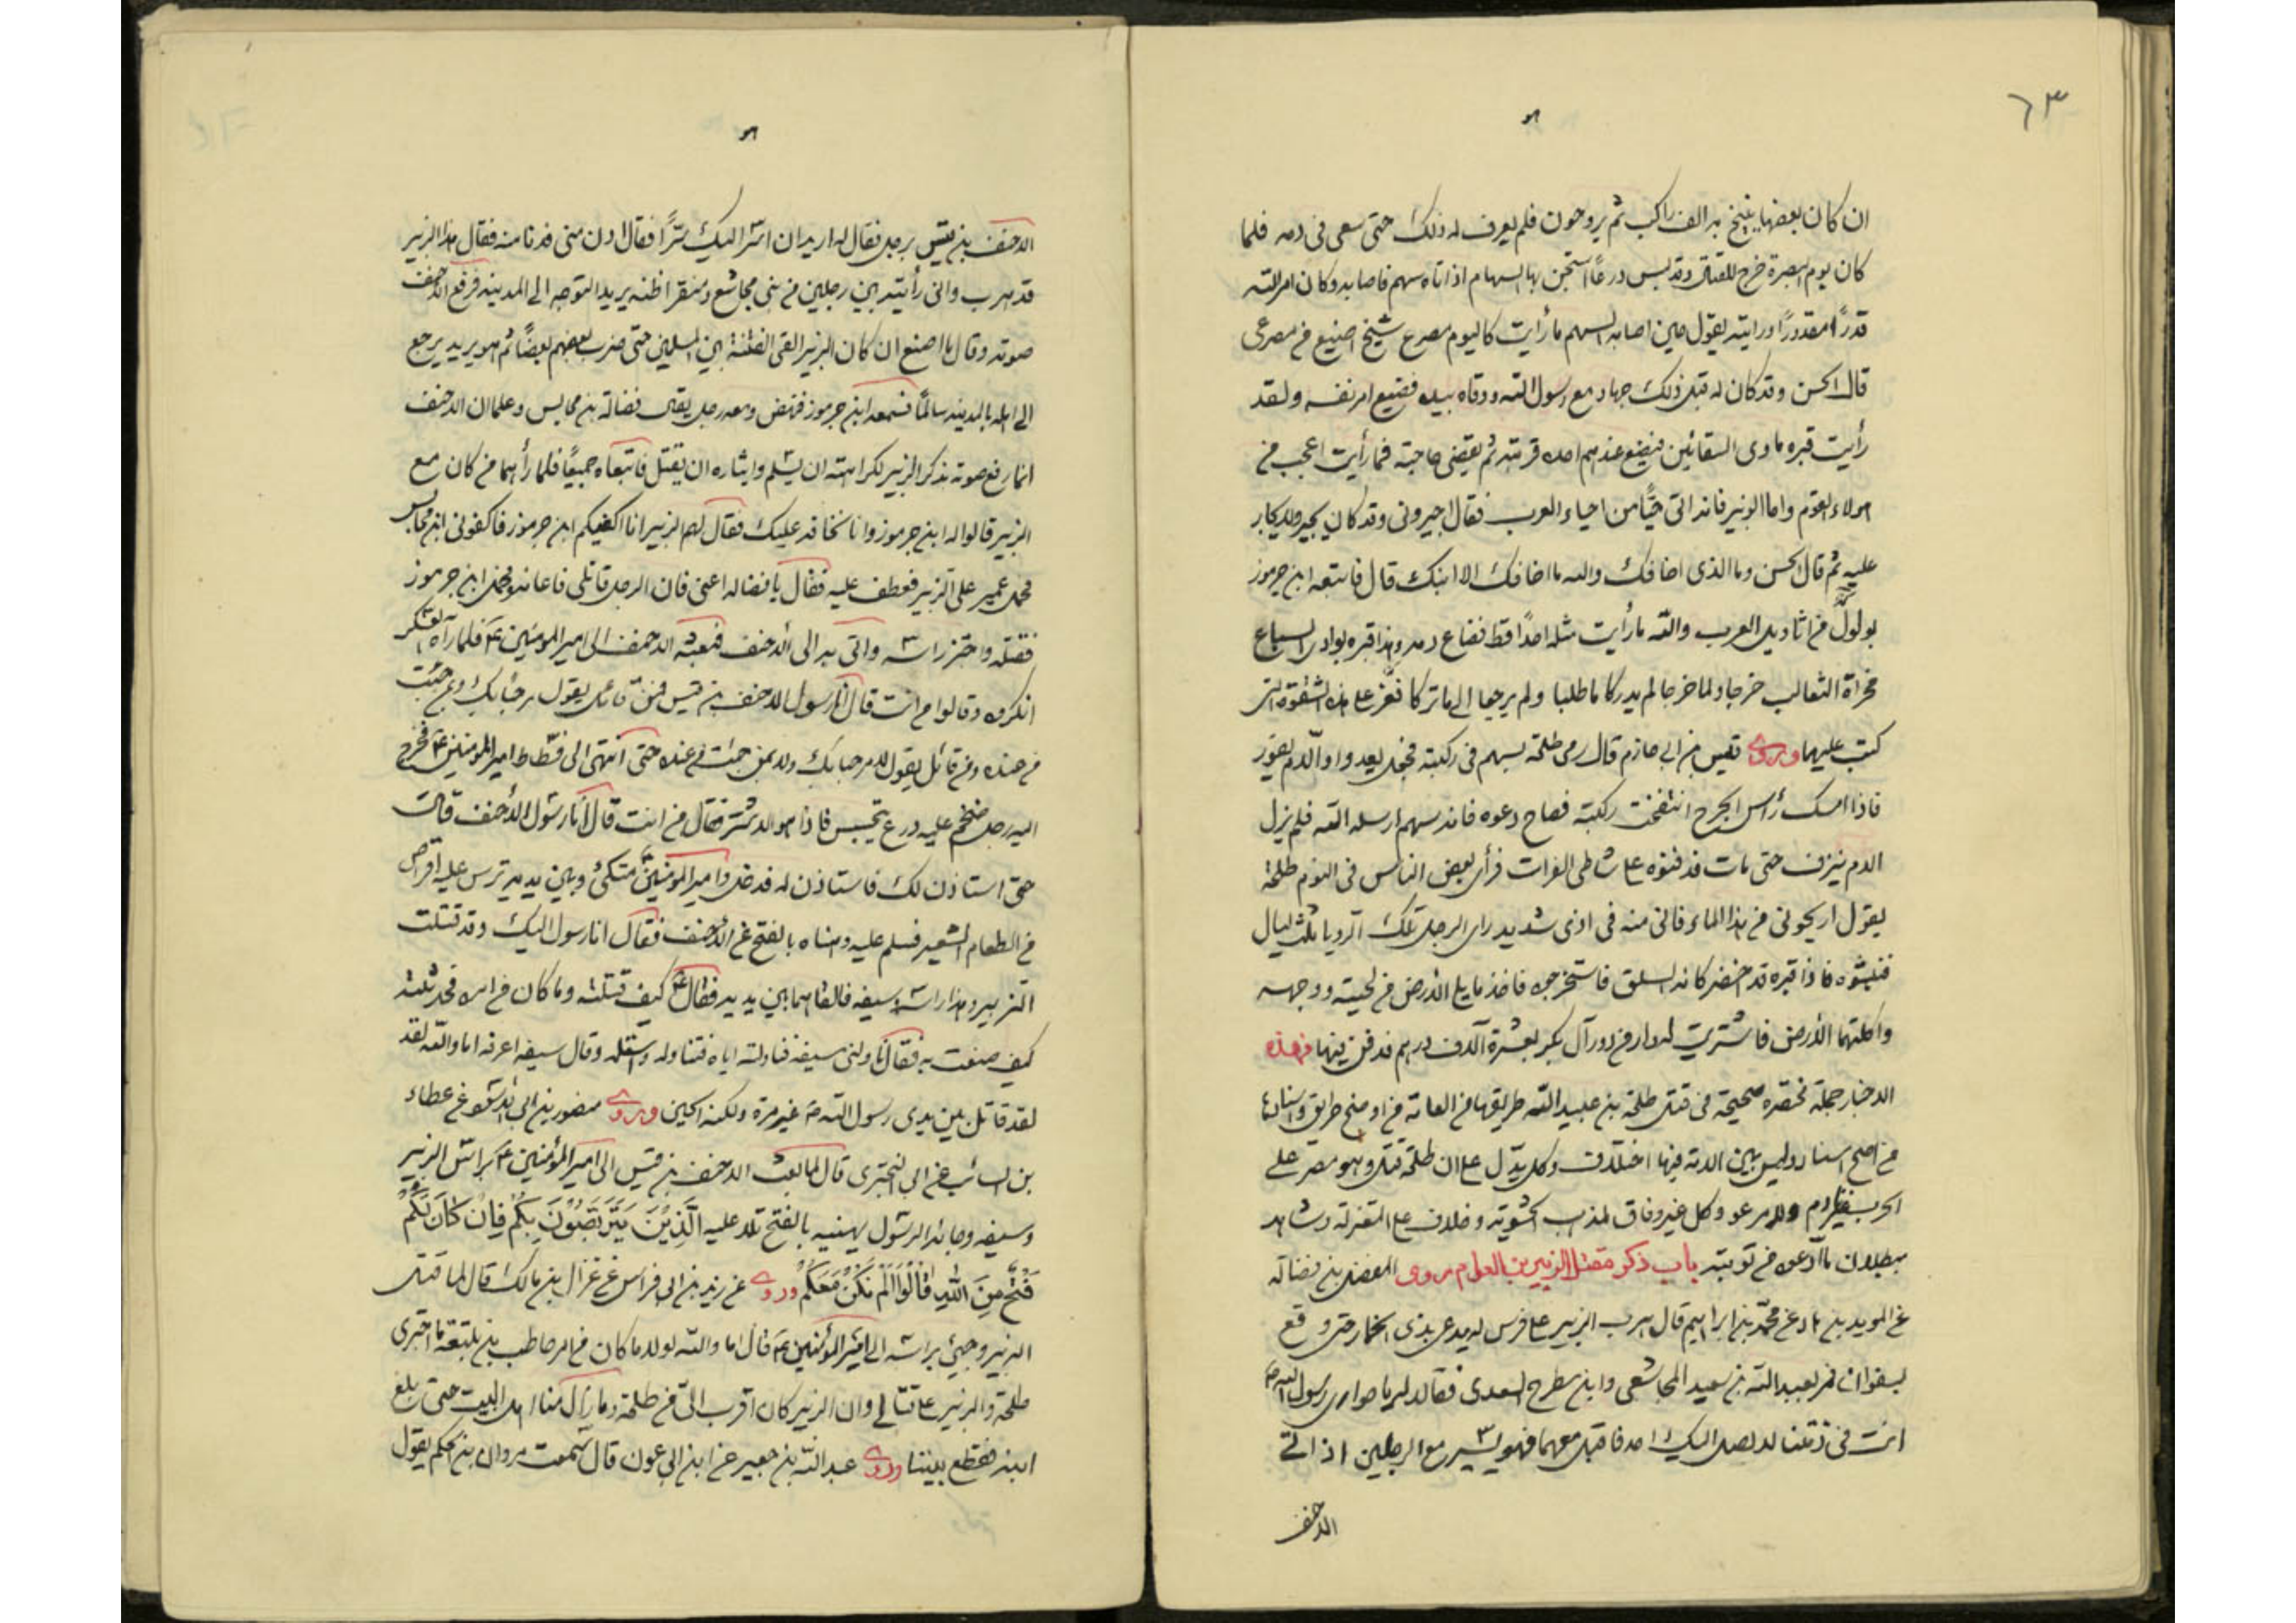 ٦٣
ان كان بعضها ينيخ به الف راكب ثم يروحون فلم يعرف له ذلك حتى سعى في دمه فلما
كان يوم البصرة خرج للقتال وقد لبس درعًا استجن بها السهام اذ اتاه سهم فاصابه وكان امر الله
قدرًا مقدورًا ورايته يقول حين اصابه السهم ما رأيت كاليوم مصرع شيخ اضيع من مصرعي
قال الحسن وقد كان له قبل ذلك جهاد مع رسول الله ووقاه بيده فضيع امر نفسه ولقد
رأيت قبره مأوى السقائين فيضع عندهم احد قربته ثم يقضي حاجته فما رأيت اعجب من
هولاء القوم واما الزبير فانه اتى حيًّا من احياء العرب فقال اجيروني وقد كان يجير ولا يجار
عليه ثم قال الحسن وما الذي اخافك والله ما اخافك الا ابنك قال فاتبعه ابن جرموز
من اثاويل العرب والله ما رأيت مثله احدًا قط فضاع دمه وهذا قبره بوادى السباع
مخراة الثعالب خرجا ولما خرجا لم يدركا ما طلبا ولم يرجعا الى ما تركا فعز على هذه الشقوة التي
كتب عليهما وروى قيس بن ابي حازم قال رمى طلحة بسهم في ركبته فجعل يعدوا والدم يفور
فاذا امسك رأس الجرح انتفخت ركبته فصاح دعوه فانه سهم ارسله الله فلم يزل
الدم ينزف حتى مات فدفنوه على شاطى الفرات فرأى بعض الناس في النوم طلحة
يقول اريحوني من هذا الماء فاني منه في اذى شديد راى الرجل تلك الرويا ثلث ليال
فنبشوه فاذا قبره قد اخضر كانه السلق فاستخرجوه فاخذ ما يلي الارض من لحيته ووجهه
واكلتهما الأرض فاشتريت له دار من دور آل بكر بعشرة آلاف درهم فدفن فيها فهذه
الاخبار جملة مختصره صحيحة في قتل طلحة بن عبيد الله طريقها من العامة من اوضح طريق واسنادها
من اصح اسناد وليس بين الامة فيها اختلاف وكل يدل على ان طلحة قتل وهو مصر على
الحرب غير نادم ولا مرعو وكل غير وفاق لمذهب الحشوية وخلاف على المعتزلة وشاهد
ببطلان ما ادعوه من توبته باب ذكر مقتل الزبير بن العوام روى المفضل بن فضالة
عن محمد بن ابراهيم قال هرب الزبير على فرس له يدعى بذى الخمار حتى وقع
بسفوان فمر بعبد الله بن سعيد المجاشعي وابن مطرح السعدى فقالا له يا حوارى رسول الله ص
انت في ذمتنا لا يصل اليك احد فاقبل معهما فهو يسير مع الرجلين اذ اتى
الاحنف
الاحنف بن قيس برجل فقال له اريد ان اسر اليك سرًّا فقال ادن مني فدنا منه فقال هذا الزبير
قد هرب واني رأيته بين رجلين من بني مجاشع ومنقر اظنه يريد التوجه الى المدينة فرفع الاحنف
صوته وقال ما اصنع ان كان الزبير القى الفتنة بين المسلمين حتى ضرب بعضهم بعضًا ثم هو يريد يرجع
الى اهله بالمدينة سالمًا فسمعه ابن جرموز فنهض ومعه رجل يقال فضالة بن محابس وعلما ان الاحنف
انما رفع صوته بذكر الزبير لكراهته ان يسلم وايثاره ان يقتل فاتبعاه جميعًا فلما رأهما من كان مع
الزبير قالوا له ابن جرموز وانا نخافه عليك فقال لهم الزبير انا اكفيكم ابن جرموز فاكفوني ابن محابس
فحمل عمير على الزبير فعطف عليه فقال يا فضاله اعنى فان الرجل قاتلي فاعانه وحمل ابن جرموز
فقتله واحتز راسه واتى به الى الاحنف فبعثه الاحنف الى امير المومنين ع فلما رآه العسكر
انكروه وقالوا من انت قال أنا رسول الاحنف بن قيس فمن قائل يقول مرحبا بك وبمن جئت
من عنده ومن قائل يقول لا مرحبا بك ولا بمن جئت من عنده حتى انتهى الى فسطاط امير المومنين ع فخرج
اليه رجل ضخم عليه درع يتجسس فاذا هو الاشتر فقال من انت قال أنا رسول الأحنف قال
حتى استاذن لك فاستاذن له فدخل وامير المومنين متكئ وبين يديه ترس عليه اقراص
من الطعام الشعير فسلم عليه وهناه بالفتح عن الأحنف فقال انا رسول اليك وقد قتلت
الزبير وهذا راسه وسيفه فالقاهما بين يديه فقال ع كيف قتلته وما كان من امره فحدثته
كيف صنعت به فقال ناولني سيفه فناولته اياه فتناوله واستله وقال سيف اعرفه اما والله لقد
لقد قاتل بين يدى رسول الله ص غير مرة ولكنه الحين وروى منصور بن ابى الاسود عن عطاء
بن السائب عن ابي البختري قال لما بعث الاحنف بن قيس الى امير المؤمنين ع براس الزبير
وسيفه وجائه الرسول يهنيه بالفتح تلا عليه الَّذِيْنَ يَتَرَبَّصُوْنَ بِكُمْ فَاِنْ كَانَ لَكُمْ
فَتْحٌ مِنَ اللهِ قَالُوْا اَلَمْ نَكُنْ مَعَكُمْ وروى عن زيد بن ابي فراس عن غزال بن مالك قال لما قتل
الزبير وجيئ براسه الى امير المؤمنين ع قال اما والله لولا ما كان من امر حاطب بن بلتعة ما اجترى
طلحة والزبير على قتالى وان الزبير كان اقرب الىّ من طلحة وما زال منا اهل البيت حتى بلغ
ابنه فقطع بيننا وروى عبد الله بن جعفر عن ابن ابي عون قال سمعت مروان بن الحكم يقول